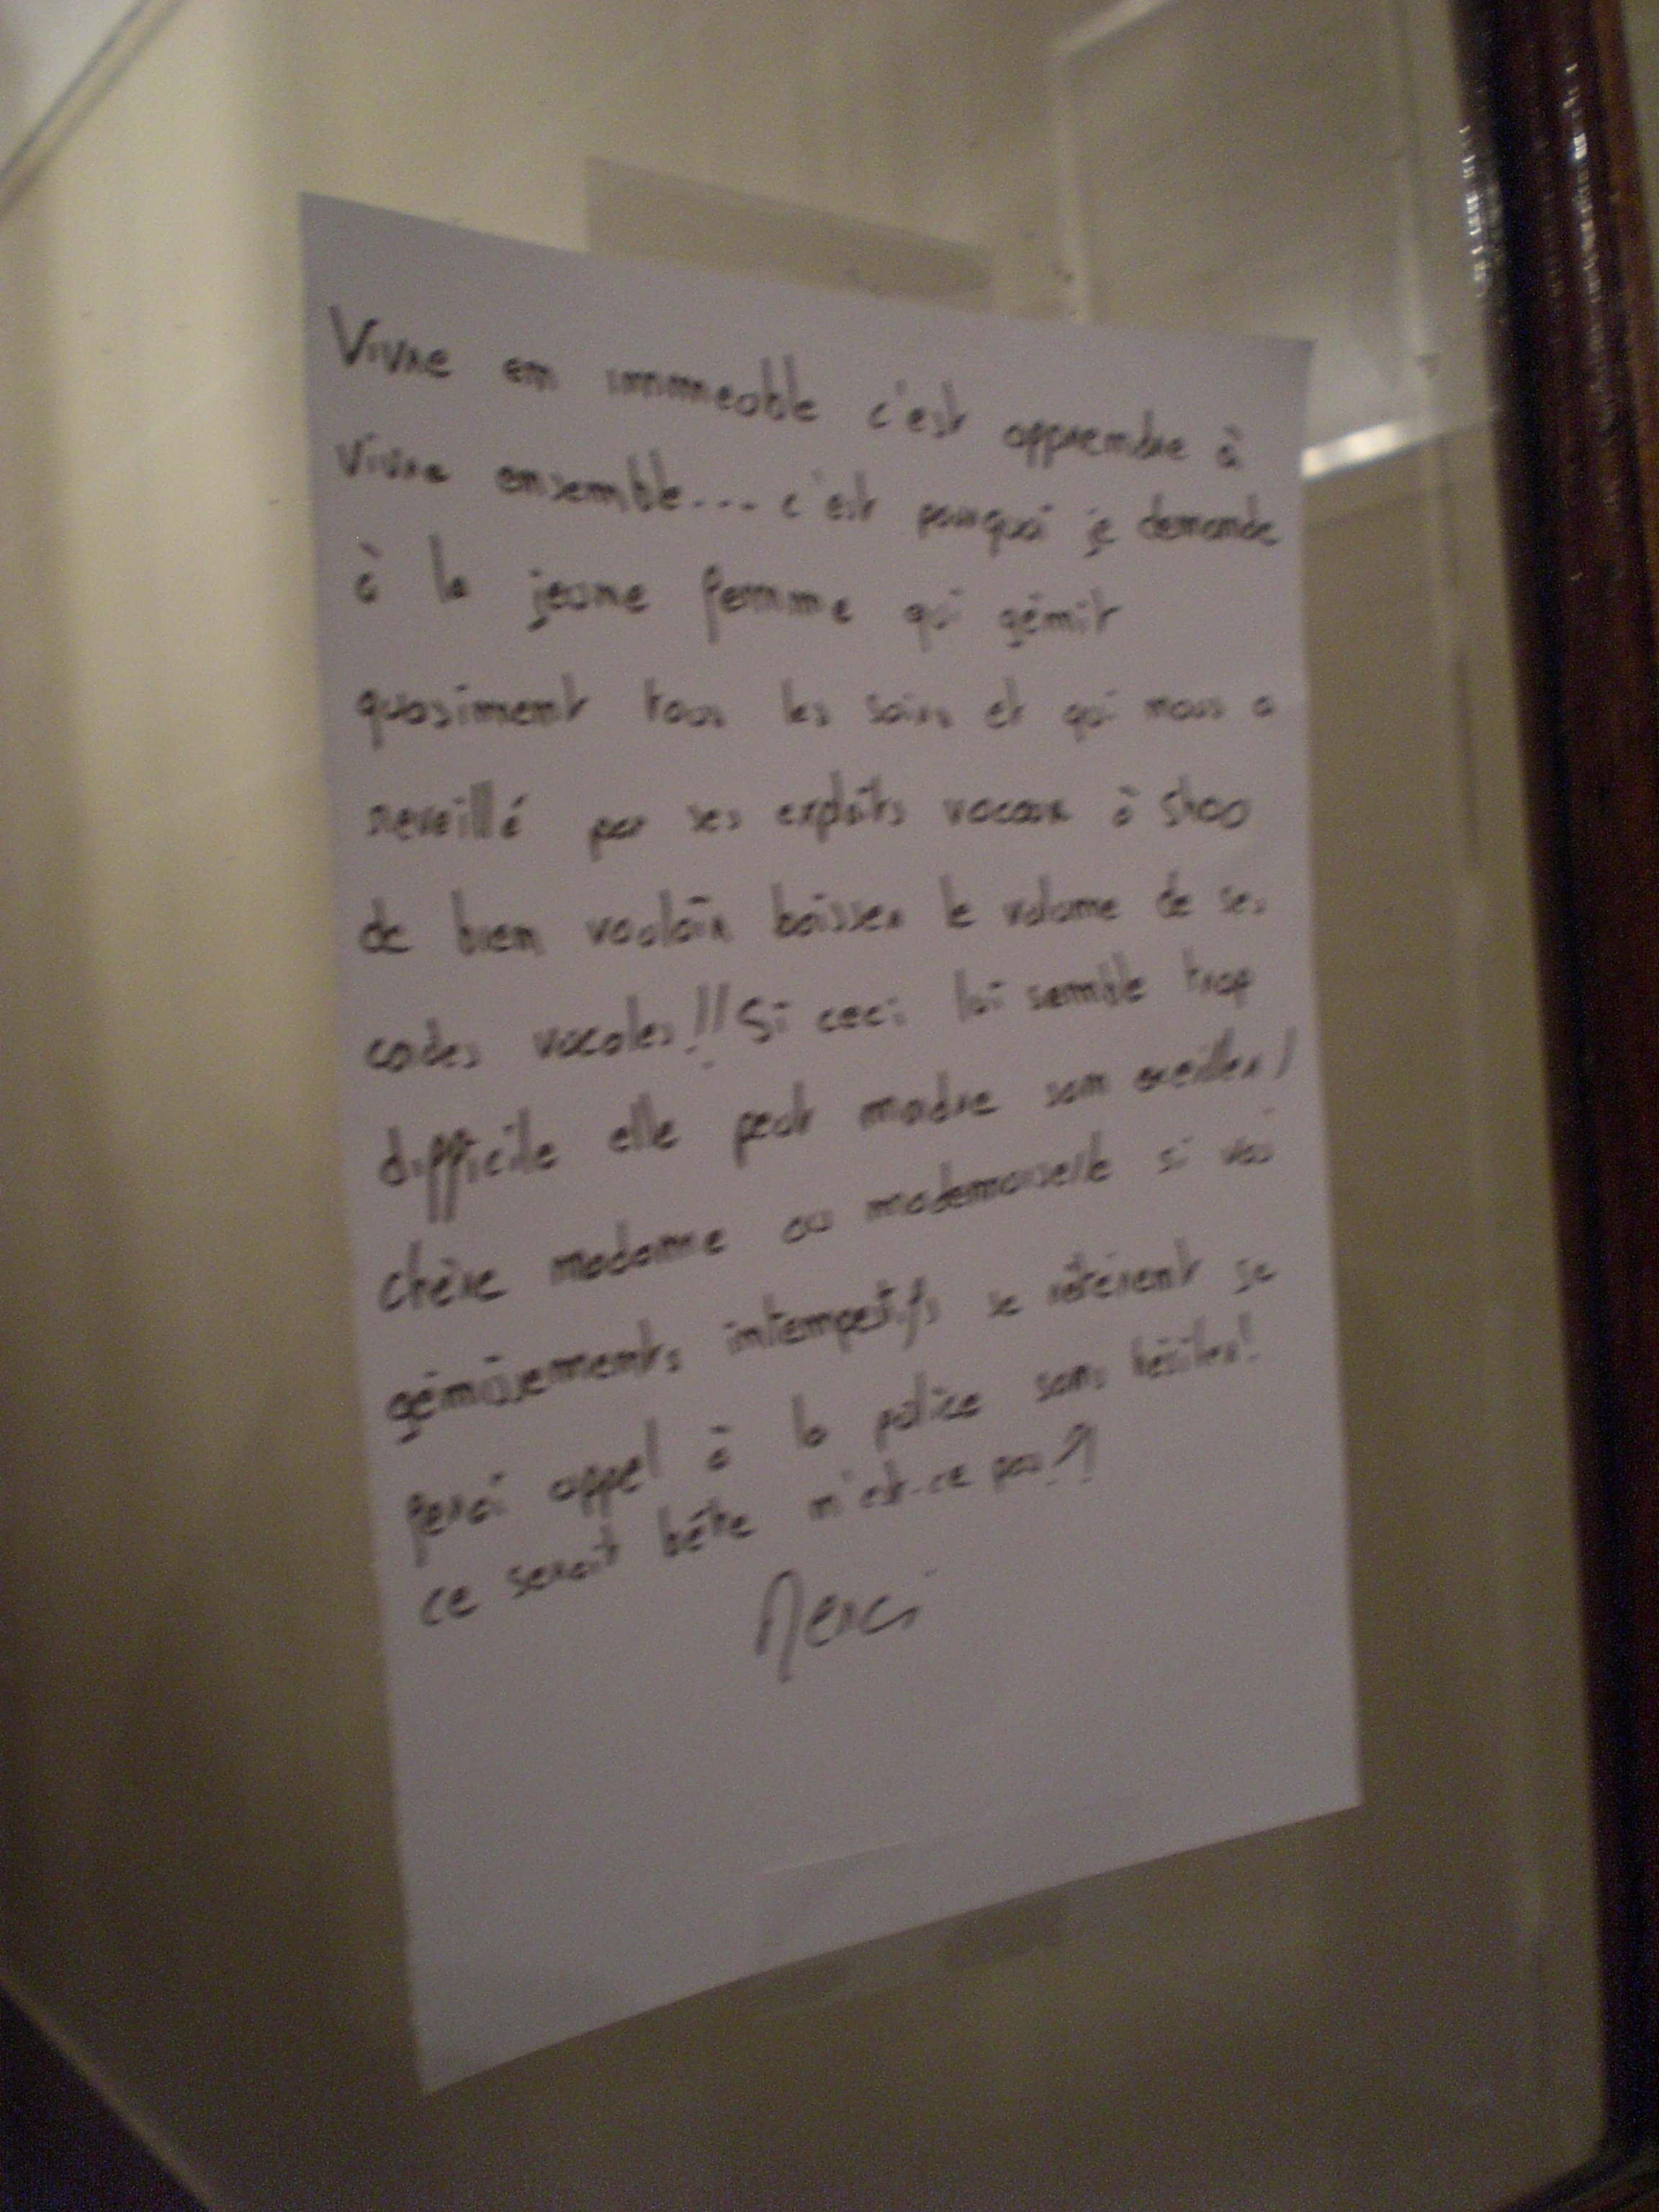 Vivre en immeuble c'est apprendre à
vivre ensemble... c'est pourquoi je demande
à la jeune femme qui gémit
quasiment tous les soirs et qui nous a
reveillé par ses exploits vocaux à 5h00
de bien vouloir baisser le volume de ses
cordes vocales!! Si ceci lui semble trop
difficile elle peut mordre son oreiller!
chère madame ou mademoiselle si vos
gémissements intempestifs se réitèrent je
ferai appel à la police sans hésiter!
ce serait bête n'est-ce pas!?
Merci